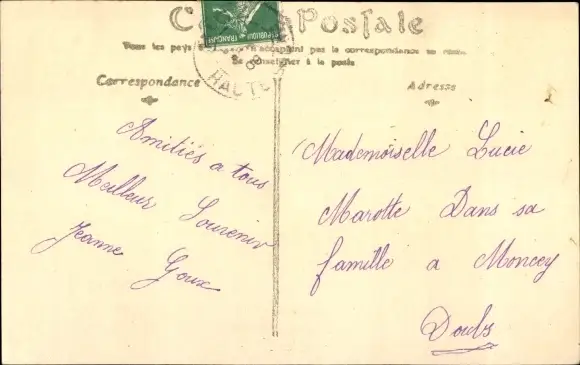 Postale
Tous les pays acceptent pas la correspondance au recto
Se renseigner à la poste
Correspondance
Adresse
REPUBLIQUE FRANÇAISE
HAUTE
Amitiés a tous
Meilleur Souvenir
Jeanne Goux
Mademoiselle Lucie
Marotte Dans sa
famille a Moncey
Doubs